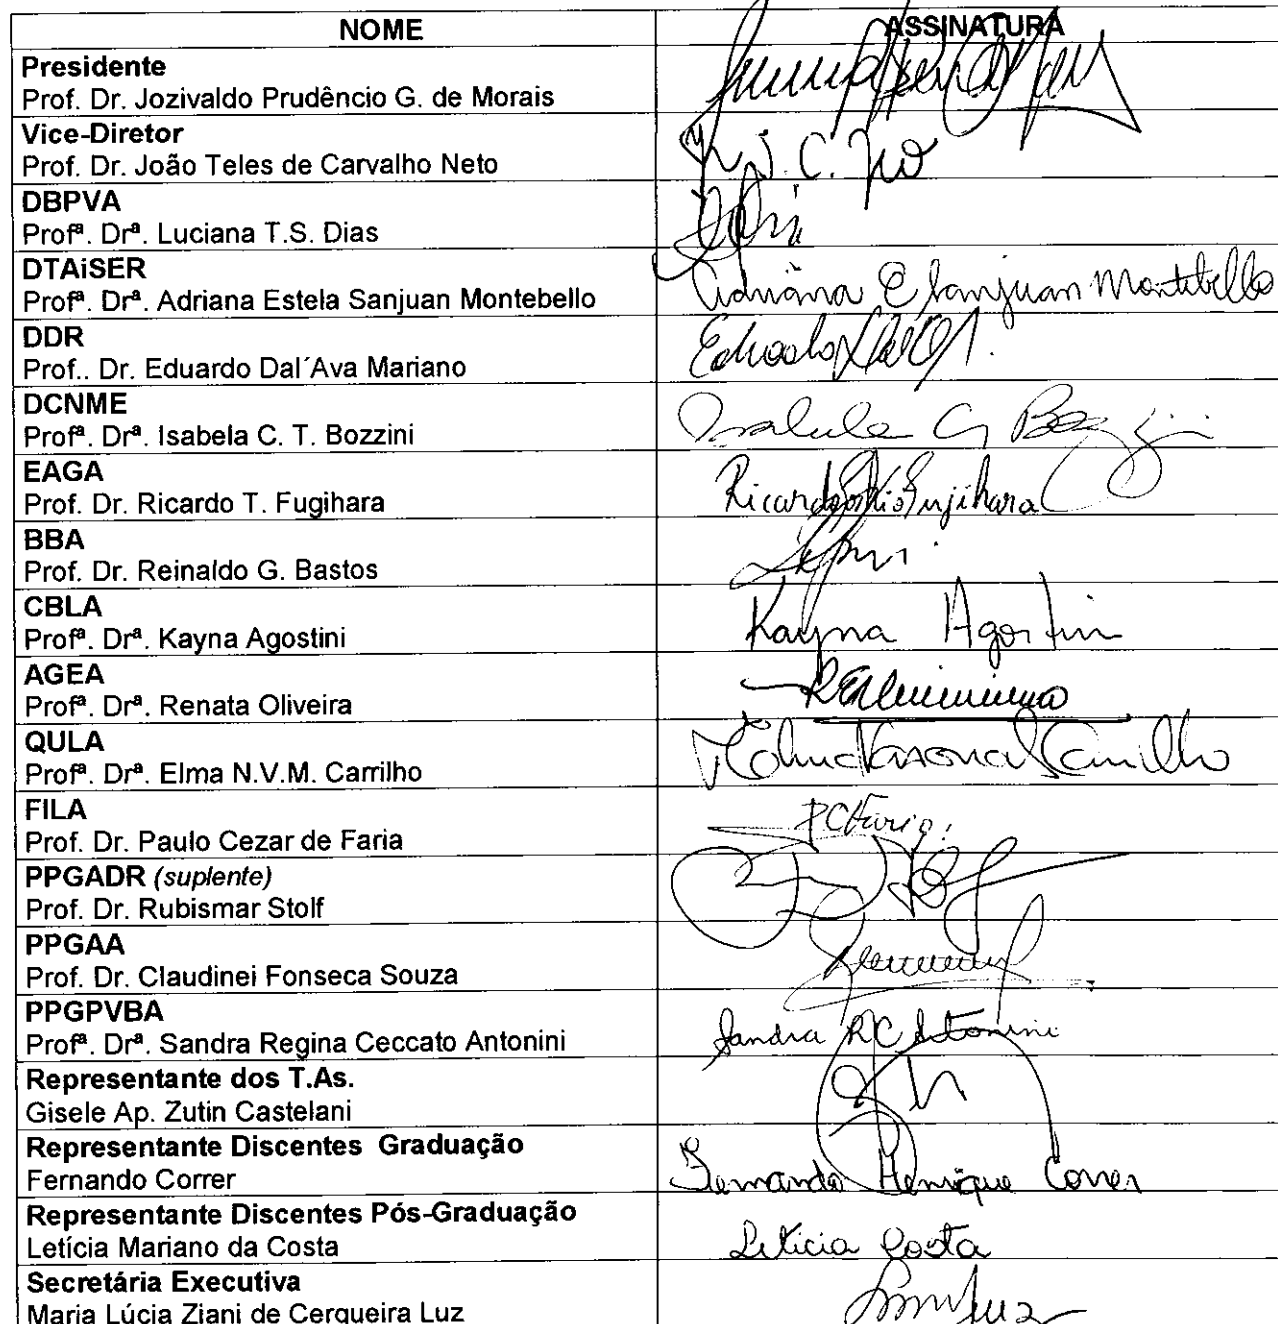 NOME ASSINATURA
Presidente
Prof. Dr. Jozivaldo Prudêncio G. de Morais
Vice-Diretor
Prof. Dr. João Teles de Carvalho Neto
DBPVA
Profª. Drª. Luciana T.S. Dias
DTAiSER
Profª. Drª. Adriana Estela Sanjuan Montebello Adriana E Sanjuan Montebello
DDR
Prof.. Dr. Eduardo Dal´Ava Mariano Eduardo
DCNME
Profª. Drª. Isabela C. T. Bozzini
EAGA
Prof. Dr. Ricardo T. Fugihara Ricardo Fujihara
BBA
Prof. Dr. Reinaldo G. Bastos
CBLA
Profª. Drª. Kayna Agostini Kayna Agostini
AGEA
Profª. Drª. Renata Oliveira
QULA
Profª. Drª. Elma N.V.M. Carrilho
FILA
Prof. Dr. Paulo Cezar de Faria PCFaria
PPGADR (suplente)
Prof. Dr. Rubismar Stolf
PPGAA
Prof. Dr. Claudinei Fonseca Souza
PPGPVBA
Profª. Drª. Sandra Regina Ceccato Antonini Sandra RC Antonini
Representante dos T.As.
Gisele Ap. Zutin Castelani
Representante Discentes Graduação
Fernando Correr Fernando Henrique Correr
Representante Discentes Pós-Graduação
Letícia Mariano da Costa Letícia Costa
Secretária Executiva
Maria Lúcia Ziani de Cerqueira Luz